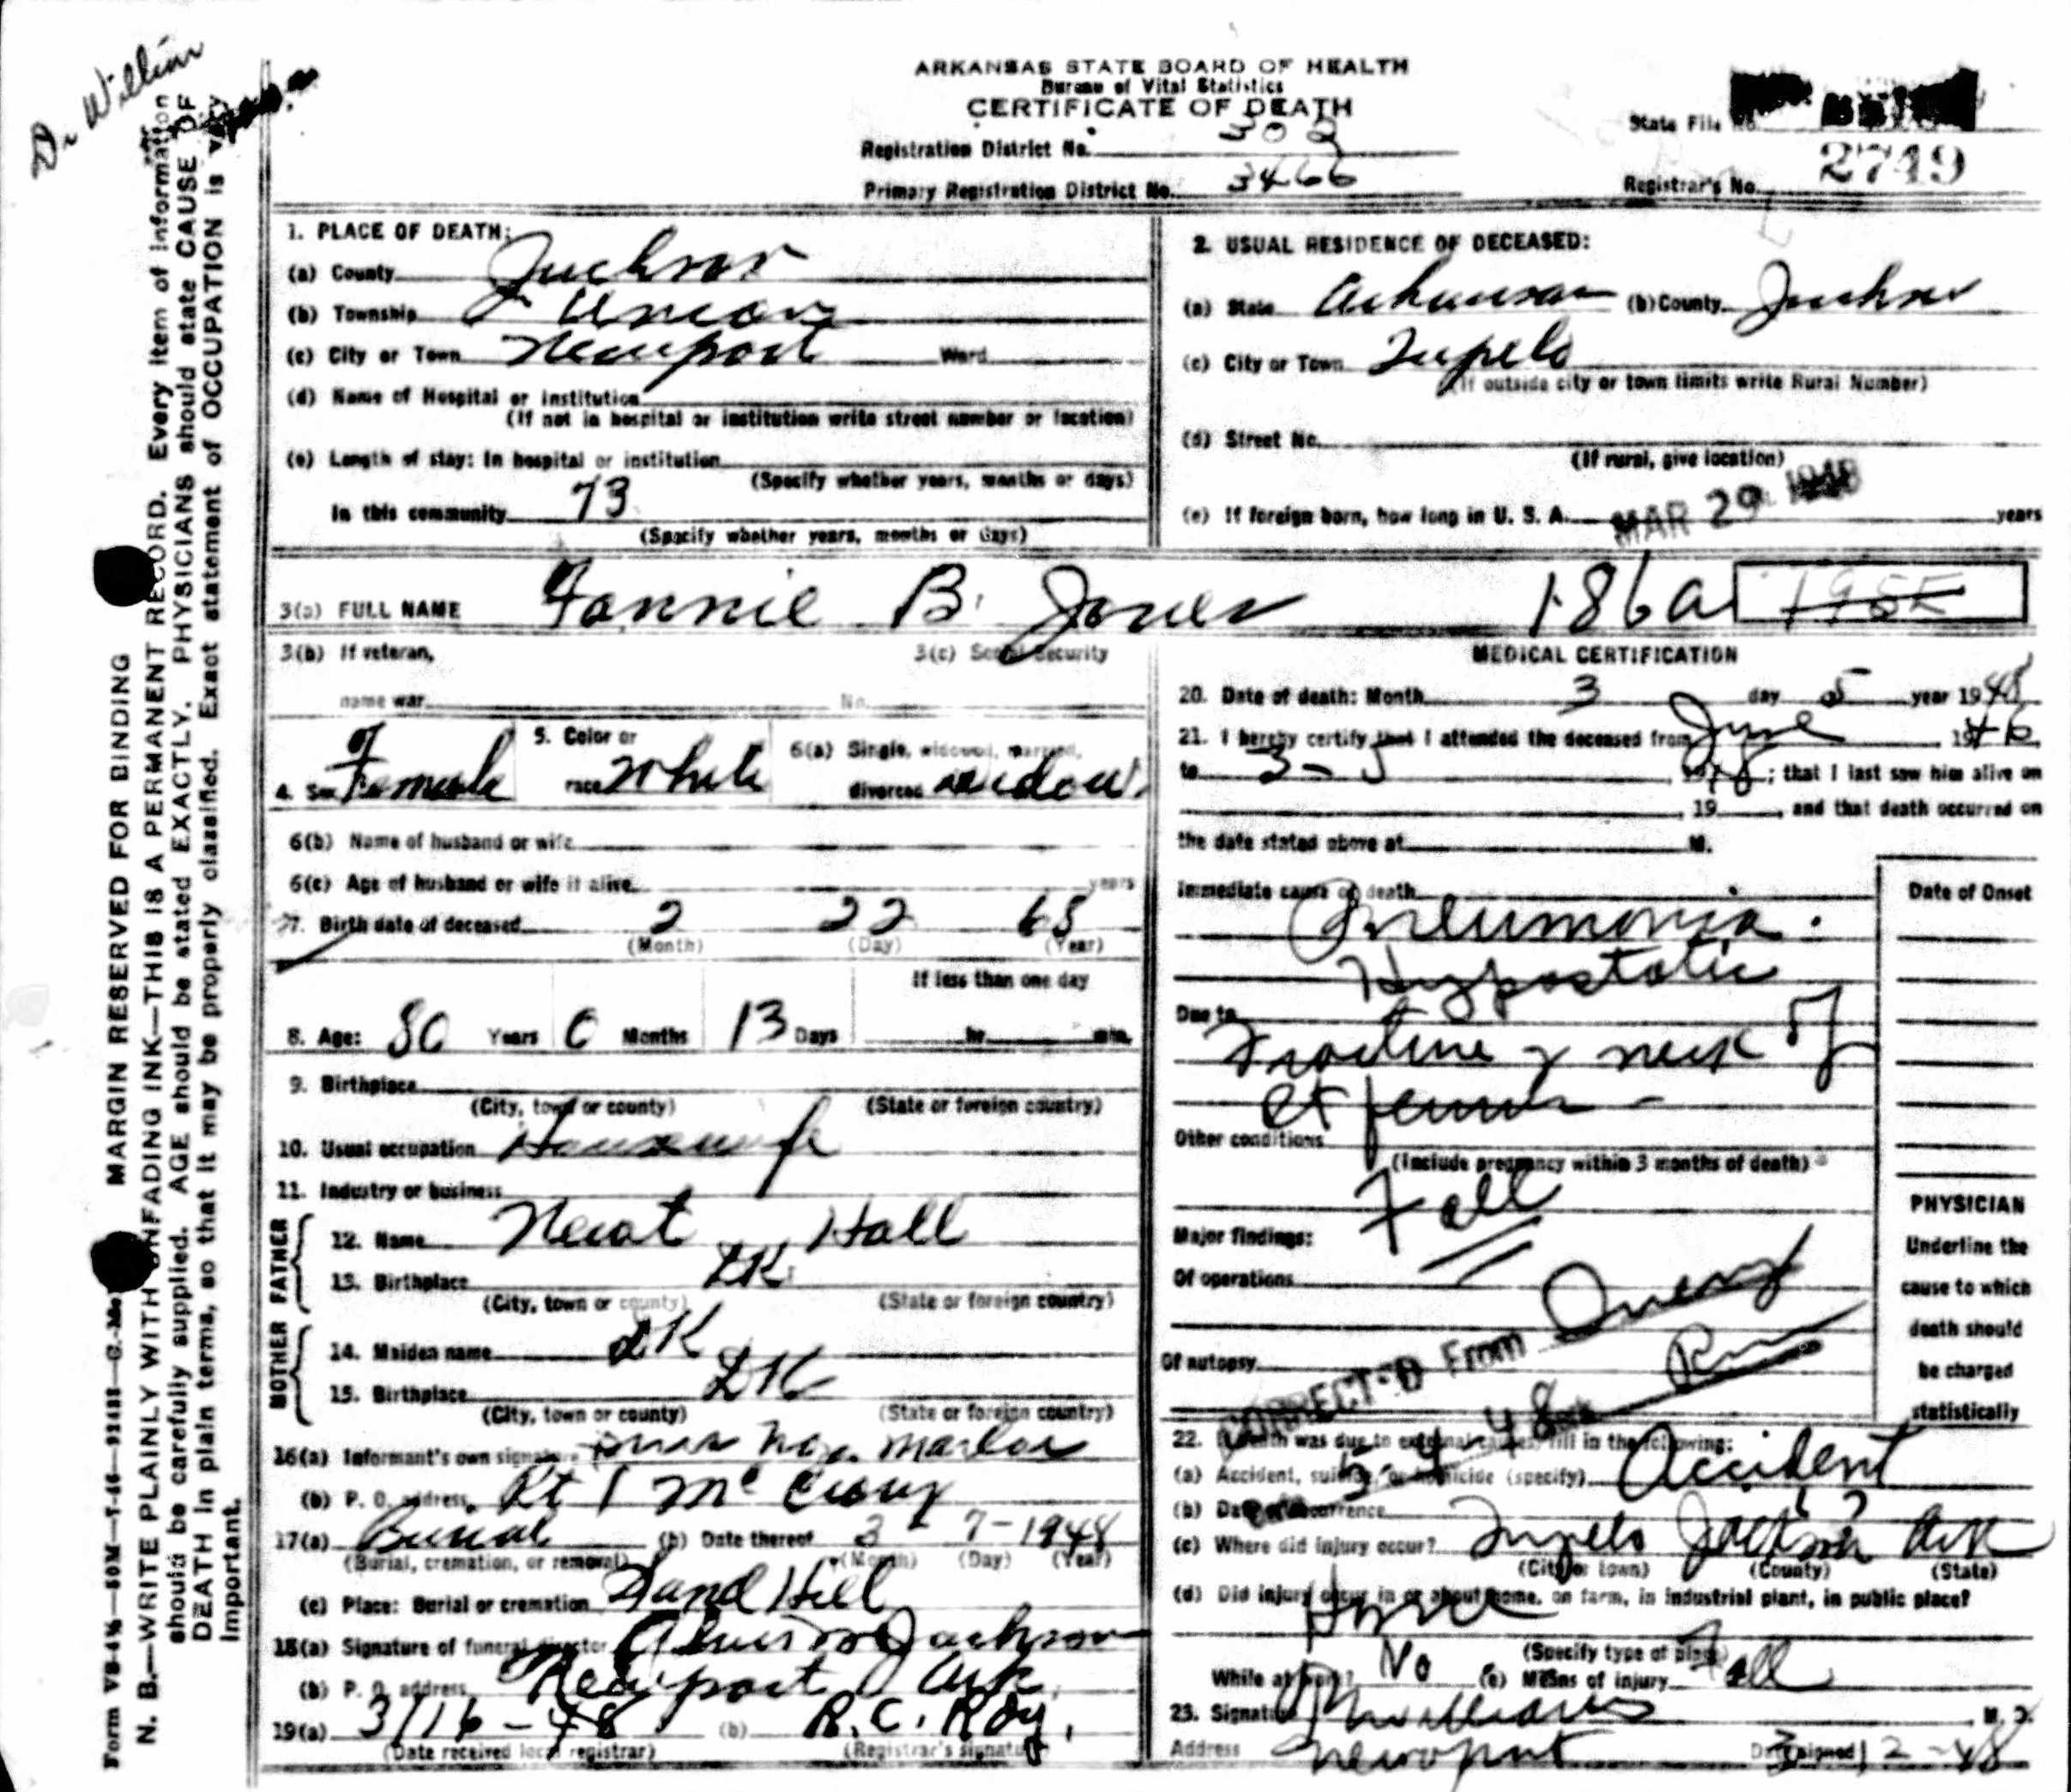 Dr William
ARKANSAS STATE BOARD OF HEALTH
Bureau of Vital Statistics
CERTIFICATE OF DEATH
Registration District No. 302
Primary Registration District No. 3466
State File No.
Registrar's No. 2749
MARGIN RESERVED FOR BINDING
N. B.—WRITE PLAINLY WITH UNFADING INK—THIS IS A PERMANENT RECORD. Every item of information
should be carefully supplied. AGE should be stated EXACTLY. PHYSICIANS should state CAUSE OF
DEATH in plain terms, so that it may be properly classified. Exact statement of OCCUPATION is very
important.
1. PLACE OF DEATH:
(a) County Jackson
(b) Township Union
(c) City or Town Newport Ward
(d) Name of Hospital or institution
(If not in hospital or institution write street number or location)
(e) Length of stay: In hospital or institution
(Specify whether years, months or days)
In this community 73
(Specify whether years, months or days)
2. USUAL RESIDENCE OF DECEASED:
(a) State Arkansas (b) County Jackson
(c) City or Town Tupelo
(If outside city or town limits write Rural Number)
(d) Street No.
(If rural, give location)
(e) If foreign born, how long in U. S. A. years
MAR 29 1948
3(a) FULL NAME Fannie B. Jones 186a
3(b) If veteran, 3(c) Social Security
name war No.
4. Sex Female 5. Color or race White 6(a) Single, widowed, married, divorced widow
6(b) Name of husband or wife
6(c) Age of husband or wife if alive years
7. Birth date of deceased 2 22 68
(Month) (Day) (Year)
If less than one day
8. Age: 80 Years 0 Months 13 Days hr. min.
9. Birthplace
(City, town or county) (State or foreign country)
10. Usual occupation Housewife
11. Industry or business
FATHER
12. Name Newt Hall
13. Birthplace DK
(City, town or county) (State or foreign country)
MOTHER
14. Maiden name DK
15. Birthplace DK
(City, town or county) (State or foreign country)
16(a) Informant's own signature
(b) P. O. address Rt 1 McCrory
17(a) Burial (b) Date thereof 3 - 7-1948
(Burial, cremation, or removal) (Month) (Day) (Year)
(c) Place: Burial or cremation Sand Hill
18(a) Signature of funeral director Jackson
(b) P. O. address Newport Ark.
19(a) 3/16-48 (b) R. C. Roy.
(Date received local registrar) (Registrar's signature)
MEDICAL CERTIFICATION
20. Date of death: Month 3 day 5 year 1948
21. I hereby certify that I attended the deceased from June 1946
to 3-5, 1948; that I last saw him alive on
, 19 , and that death occurred on
the date stated above at M.
Immediate cause of death Date of Onset
Pneumonia.
Hypostatic
Due to
Fracture of neck of
rt femur -
Other conditions
(Include pregnancy within 3 months of death)
Fall
Major findings:
Of operations
Of autopsy
PHYSICIAN
Underline the
cause to which
death should
be charged
statistically
CORRECTED From Query
5-4-48
22. If death was due to external causes, fill in the following:
(a) Accident, suicide, or homicide (specify) Accident
(b) Date of occurrence ?
(c) Where did injury occur? Tupelo Jackson Ark
(City or town) (County) (State)
(d) Did injury occur in or about home, on farm, in industrial plant, in public place?
Home
(Specify type of place)
While at work? No (e) Means of injury Fall
23. Signature Williams M. D.
Address Newport Date signed 3-12-48